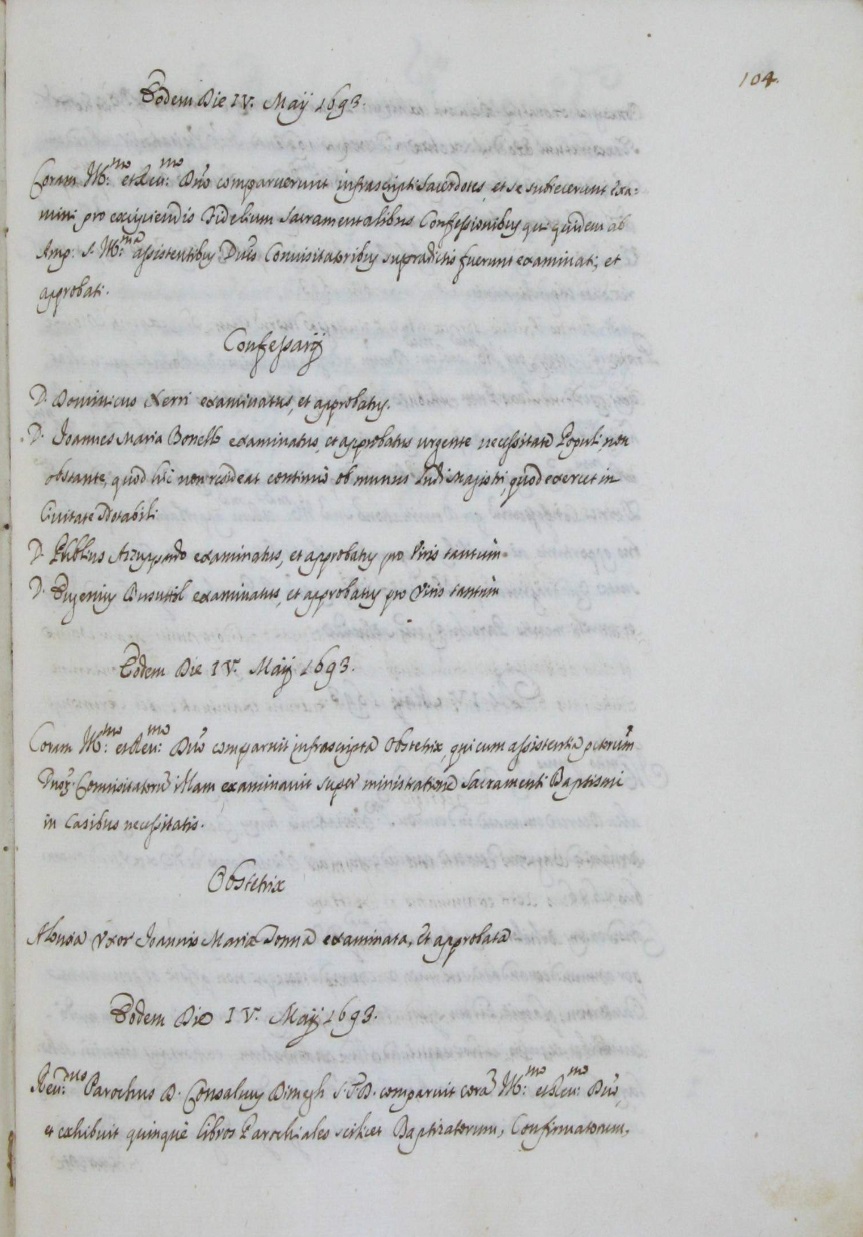 104.
Eodem Die IV. Maij 1693.
Coram Ill.mo et Reu.mo Dno comparuerunt infrascripti Sacerdotes, et se subiecerunt exa-
mini pro excipiendis Fidelium Sacramentalibus Confessionibus qui quidem ab
Amp. s. Ill.ma assistentibus Dnis Conuisitatoribus supradictis fuerunt examinati, et
approbati.
Confessarij
D. Dominicus Xerri examinatus, et approbatus.
D. Ioannes Maria Bonello examinatus, et approbatus urgente necessitate Populi, non
obstante, quod hic non resideat continuò ob munus Ludi Magistri, quod exercet in
Ciuitate Notabili
D. Publius Azzuppardo examinatus, et approbatus pro Viris tantum
D. Eugenius Busuttil examinatus, et approbatus pro Viris tantum
Eodem Die IV. Maij 1693.
Coram Ill.mo et Reu.mo Dno comparuit infrascripta Obstetrix, qui cum assistentia
Dnor. Conuisitatorũ illam examinauit super ministratione Sacramenti Baptismi
in Casibus necessitatis.
Obstetrix
Alonsa Vxor Ioannis Mariæ Tonna examinata, et approbata
Eodem Die IV. Maij 1693.
Reu.dus Parochus D. Consaluus Dimegh S.T.D. comparuit corã Ill.mo et Reu.mo Dno,
et exhibuit quinque libros Parochiales scilicet Baptizatorum, Confirmatorum,